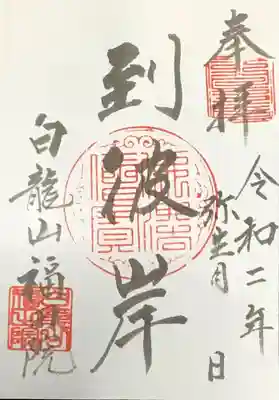 奉拝
令和二年
弥生月 日
到彼岸
白龍山福 院